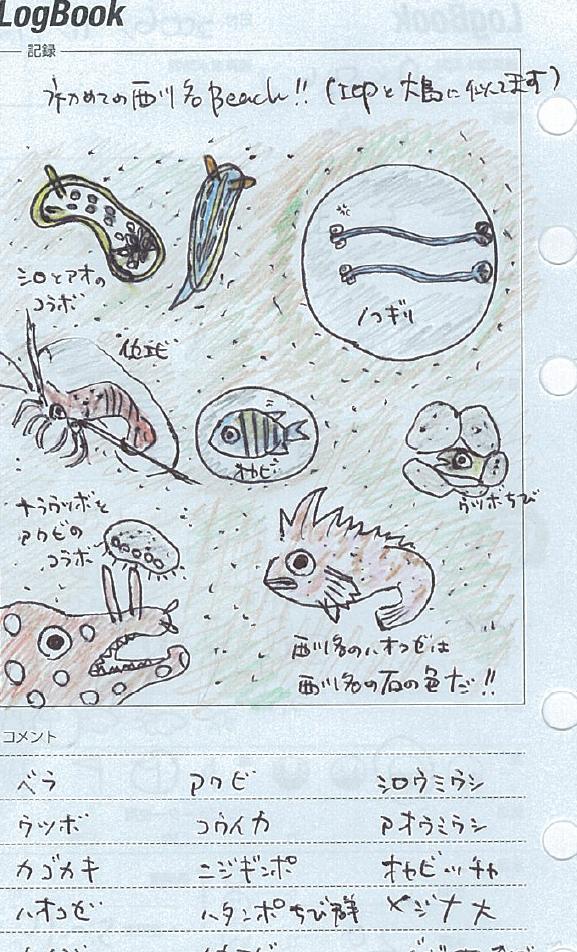 LogBook
記録
初めての西川名Beach!! (IOPと大島に似てます)
シロとアオの
コラボ
ノコギリ
イセエビ
オヤビ
ウツボちび
トラウツボと
アワビの
コラボ
西川名のハオコゼは
西川名の石の色だ!!
コメント
ベラ アワビ シロウミウシ
ウツボ コウイカ アオウミウシ
カゴカキ ニジギンポ オヤビッチャ
ハオコゼ ハタンポちび群 メジナ大